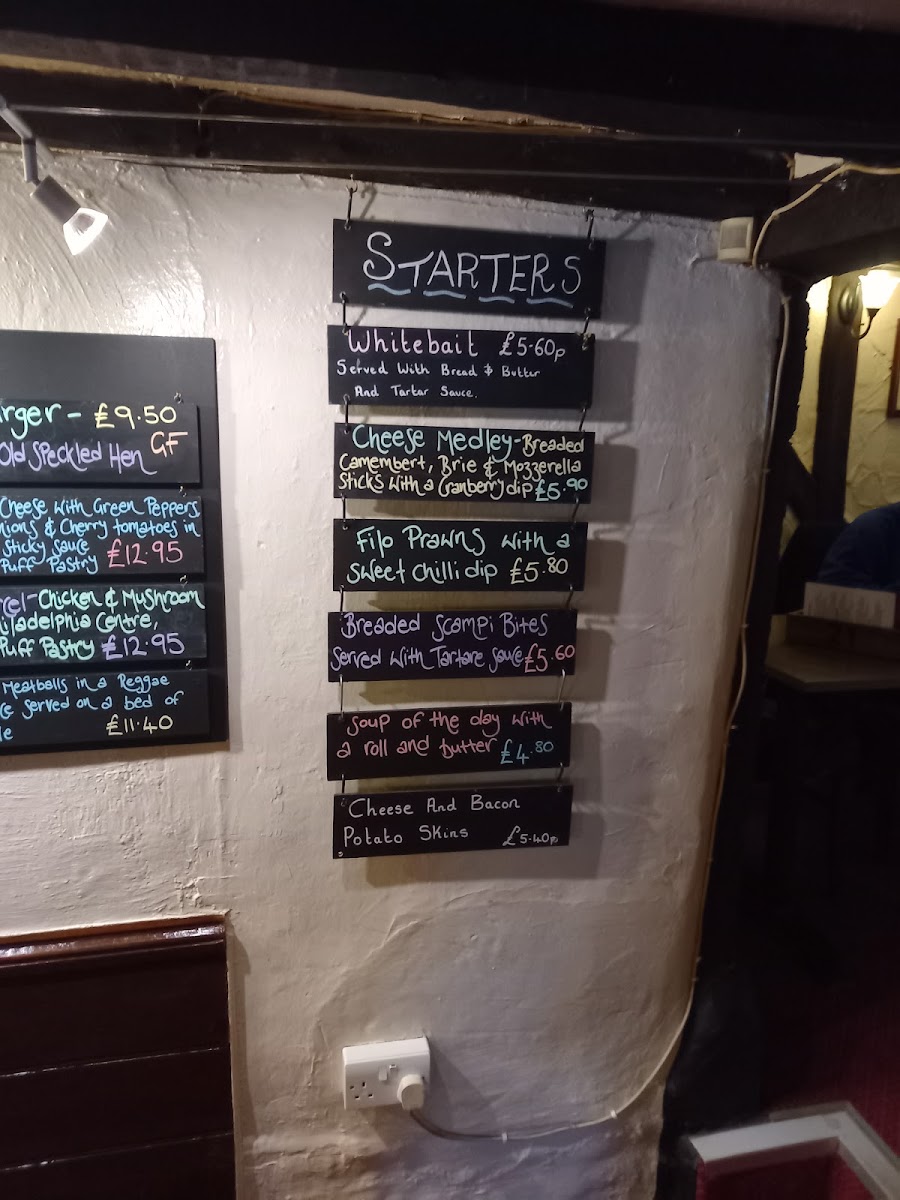 STARTERS
Whitebait £5-60p
Served With Bread & Butter
And Tartar Sauce.
Cheese Medley-Breaded
Camembert, Brie & Mozzerella
Sticks with a Cranberry dip £5.90
Filo Prawns with a
Sweet Chilli dip £5.80
Breaded Scampi Bites
Served With Tartare Sauce £5.60
Soup of the day with
a roll and butter £4.80
Cheese And Bacon
Potato Skins £5-40p
rger - £9.50
Old Speckled Hen GF
Cheese with Green Peppers
nions & Cherry tomatoes in
Sticky Sauce
Puff Pastry £12.95
rcel-Chicken & Mushroom
iladelphia Centre,
Puff Pastry £12.95
Meatballs in a Reggae
ce served on a bed of
le £11.40